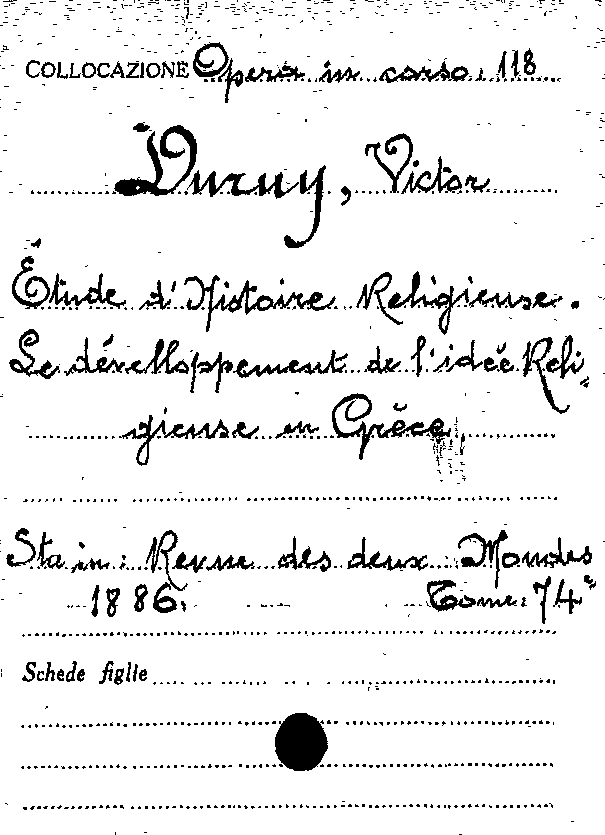 COLLOCAZIONE Opera in corso. 118
Duruy, Victor
Étude d'Histoire Religieuse.
Le dévelloppement de l'idée Reli=
gieuse en Grèce.
Sta in: Revue des deux Mondes
1886. Tome: 74°
Schede figlie